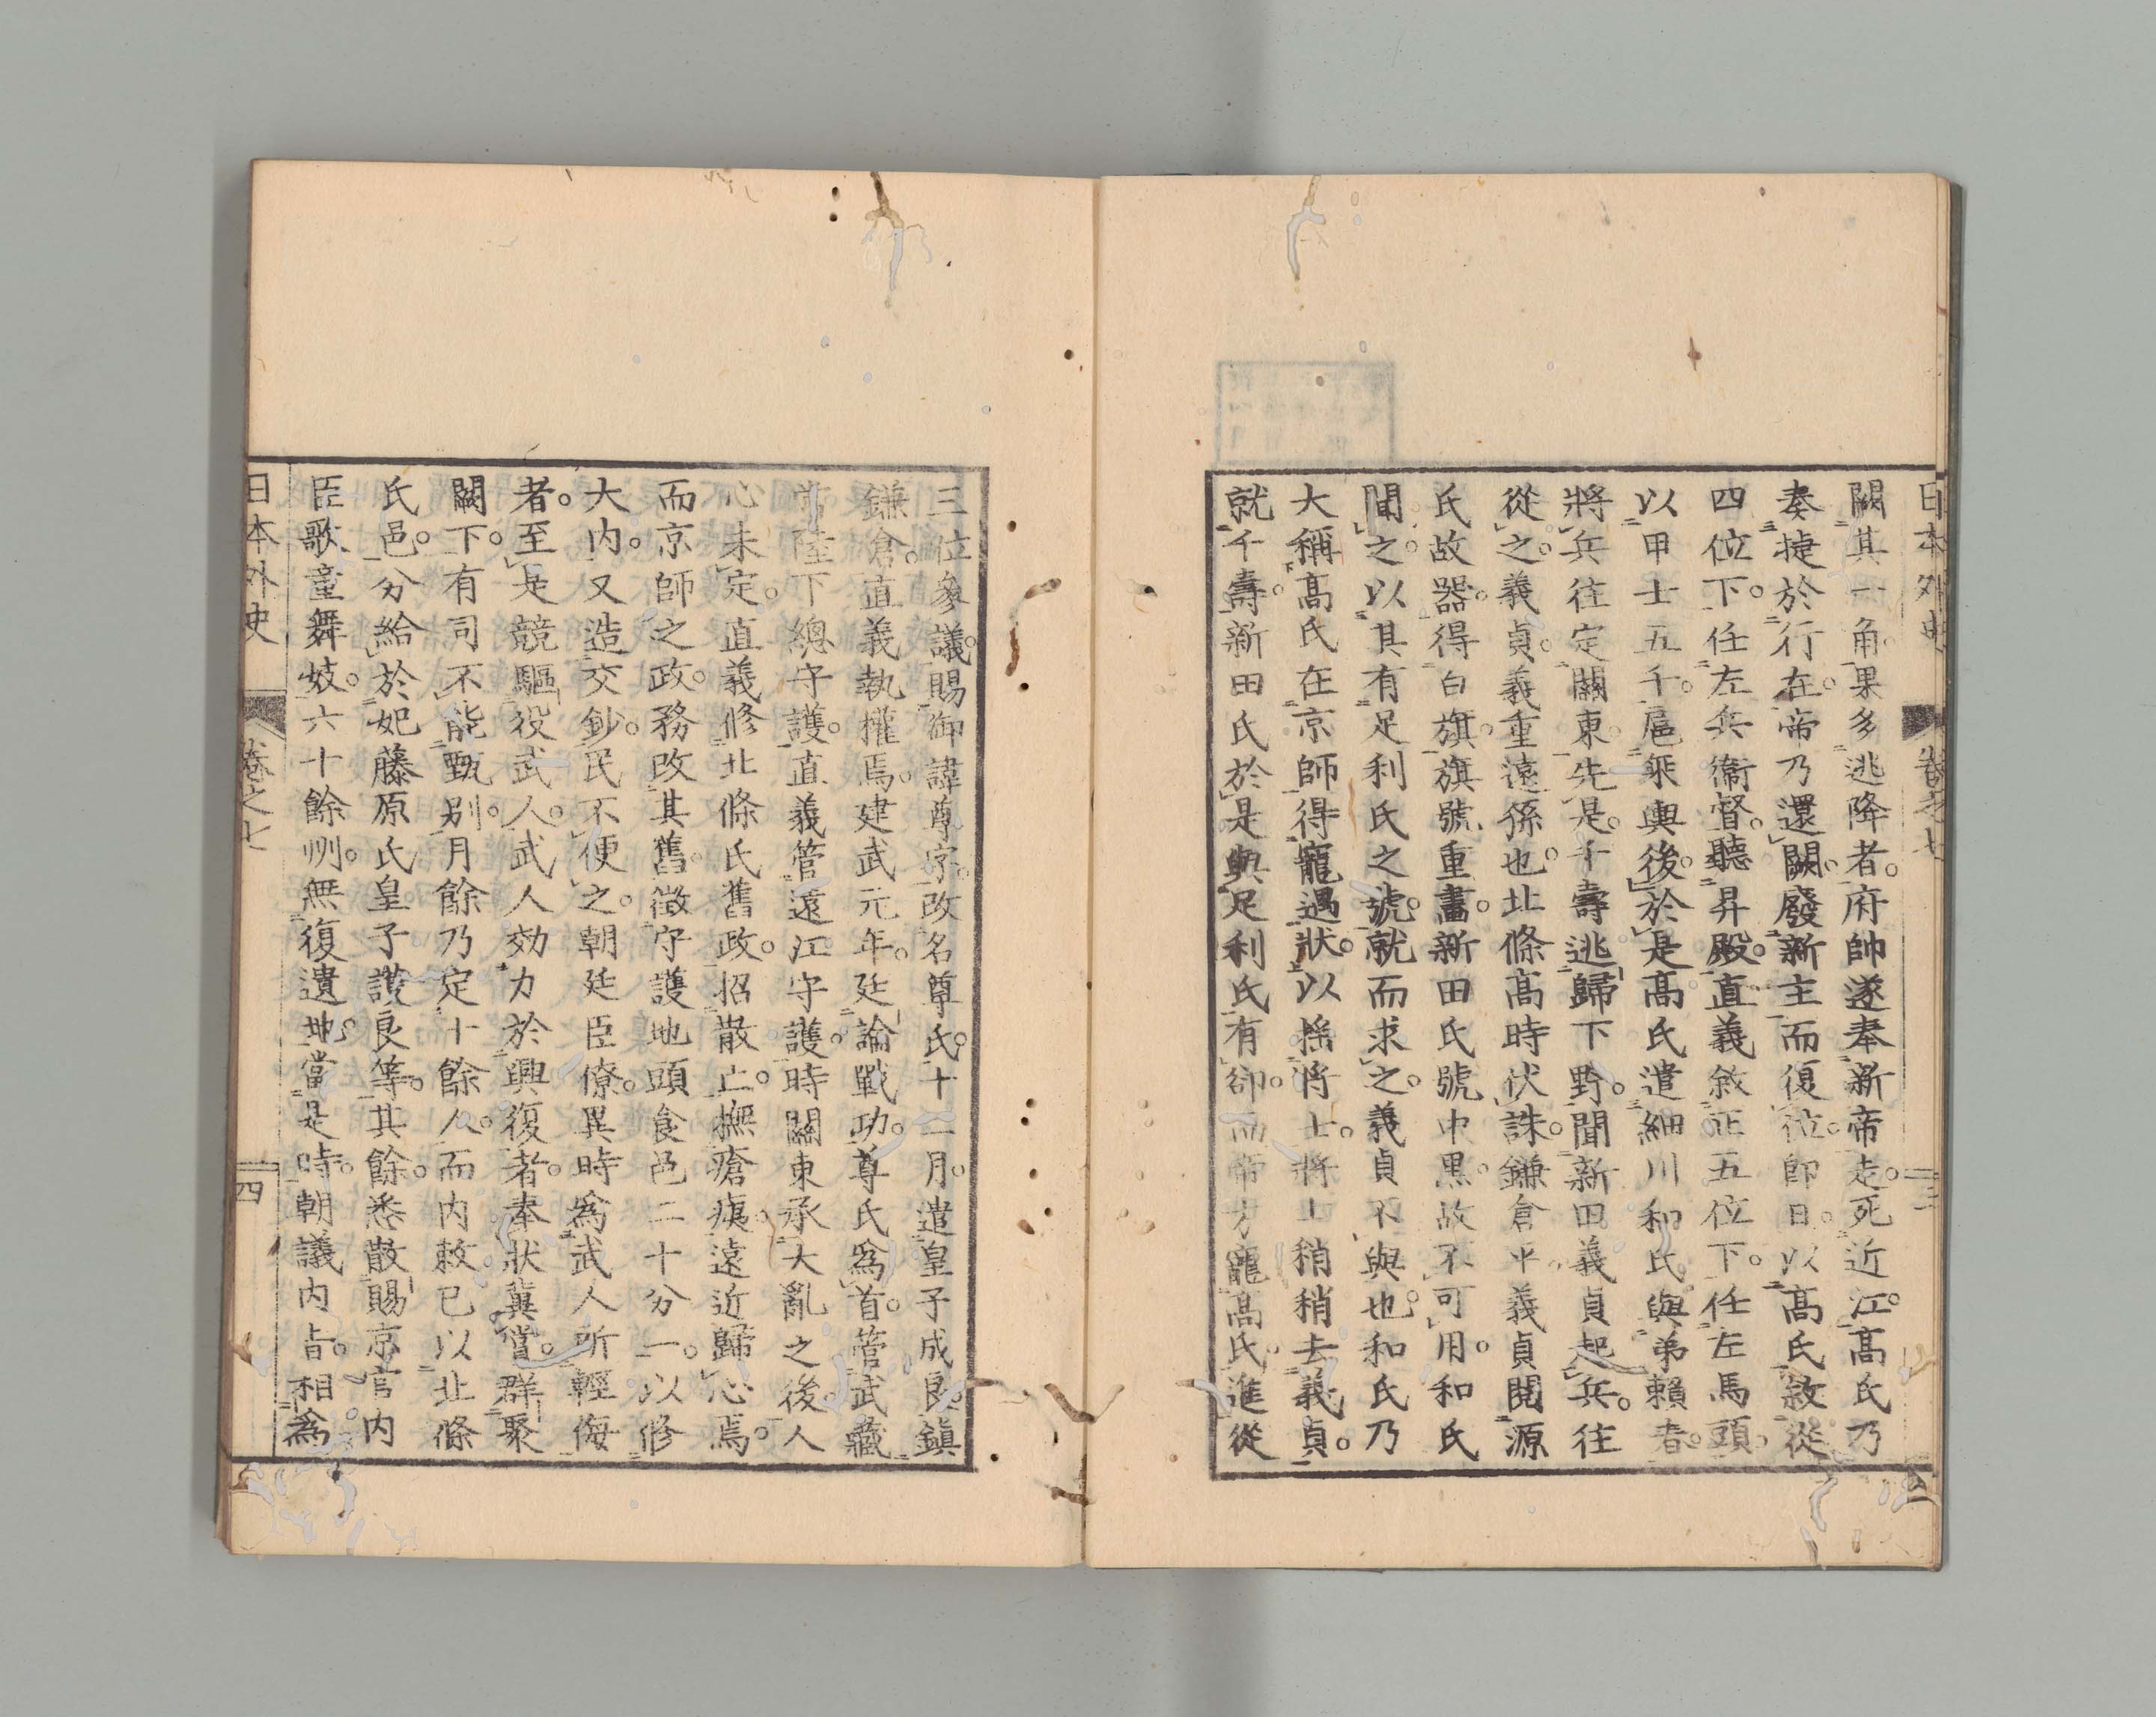 日本外史 卷之七 三
闕其一角果多逃降者。府帥遂奉新帝走。死近江。高氏乃
奏捷於行在。帝乃還闕。廢新主而復位。卽日以高氏敘從
四位下。任左兵衞督。聽昇殿。直義敘正五位下。任左馬頭。
以甲士五千。扈乘輿後。於是高氏遣細川和氏。與弟賴春。
將兵往定關東。先是。千壽逃歸下野。聞新田義貞起兵。往
從之。義貞。義重遠孫也。北條高時伏誅。鎌倉平。義貞閱源
氏故器。得白旗。旗號重畫。新田氏號中黑。故不可用。和氏
聞之。以其有足利氏之號。就而求之。義貞不與也。和氏乃
大稱高氏在京師得寵遇狀。以搖將士。將士稍稍去義貞。
就千壽。新田氏於是與足利氏有郤。而帝方寵高氏。進從
三位參議。賜御諱尊字。改名尊氏。十二月。遣皇子成良。鎭
鎌倉。直義執權焉。建武元年。廷論戰功。尊氏爲首。管武藏
常陸下總守護。直義管遠江守護。時關東承大亂之後。人
心未定。直義修北條氏舊政。招散亡。撫瘡痍。遠近歸心焉。
而京師之政。務改其舊。徵守護地頭食邑二十分一。以修
大内。又造交鈔。民不便之。朝廷臣僚。異時爲武人所輕侮
者。至是競驅役武人。武人効力於興復者。奉狀冀償。群聚
闕下。有司不能甄別。月餘乃定十餘人。而内敕已以北條
氏邑。分給於妃藤原氏皇子護良等。其餘悉散賜京官内
臣歌童舞妓。六十餘州。無復遺地。當是時。朝議内旨。相爲
日本外史 卷之七 四